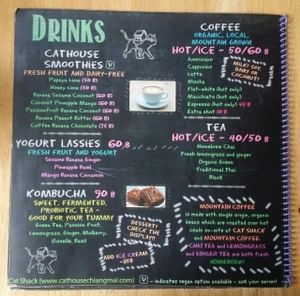 DRINKS
CATHOUSE
SMOOTHIES V
FRESH FRUIT AND DAIRY-FREE
Papaya Lime (50 B)
Honey Lime (50 B)
Banana Sesame Coconut (60 B)
Coconut Pineapple Mango (60 B)
Passionfruit Banana Coconut (60 B)
Banana Peanut Butter (60 B)
Coffee Banana Chocolate (75 B)
YOGURT LASSIES 60 B
FRESH FRUIT AND YOGURT
Sesame Banana Ginger
Pineapple Basil
Mango Banana Cinnamon
KOMBUCHA 90 B
SWEET, FERMENTED,
PROBIOTIC TEA -
GOOD FOR YOUR TUMMY
Green Tea, Passion Fruit,
Lemongrass, Ginger, Mulberry,
Roselle, Basil
COFFEE
ORGANIC, LOCAL,
MOUNTAIN GROWN
HOT/ICE - 50/60 B
Americano
Cappuccino
Latte
Mocha
Flat-white (hot only)
Macchiato (hot only)
Espresso (hot only) 45 B
Extra shot 10 B
MILK, SOY,
DAIRY OR
COCONUT!
TEA
HOT/ICE - 40/50 B
Homebrew Chai
Fresh lemongrass and ginger
Organic Green
Traditional Thai
Black
DESSERT!
CHECK THE
DISPLAY!
ADD ICE CREAM
MOUNTAIN COFFEE
is made with single origin, organic
beans which are roasted over hot
coals on-site at CAT SHACK
and MOUNTAIN COFFEE.
CHAI TEA and LEMONGRASS
and GINGER TEA are both fresh
HOMEBREW!
Cat Shack (www.cathousechiangmai.com)
V - indicates vegan option available - ask your server!